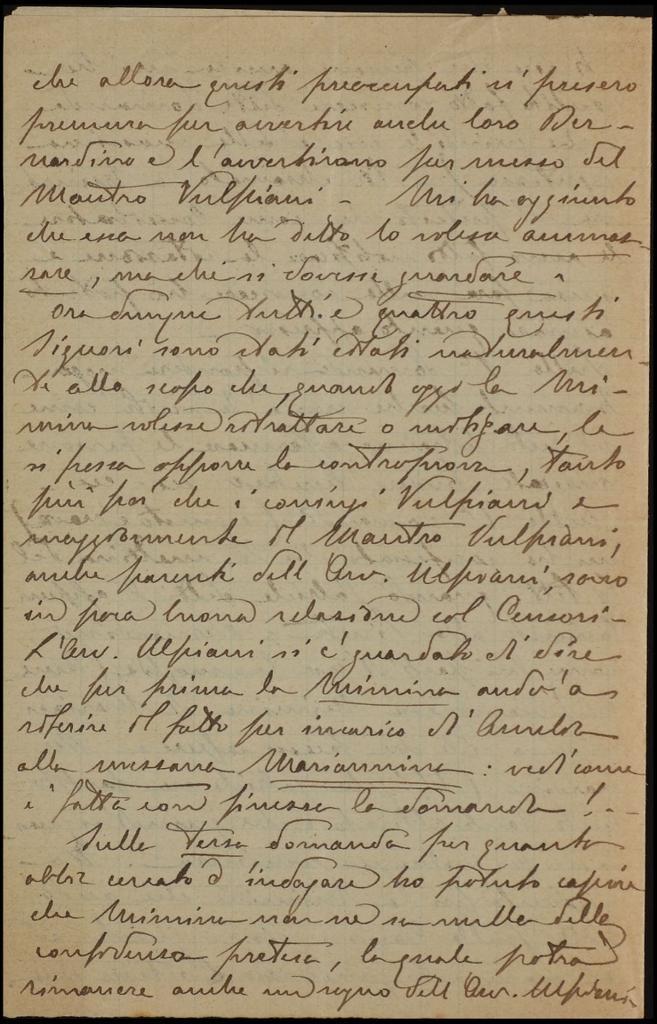 che allora questi preoccupati si presero
premura per avvertire anche loro Ber-
nardino e l'avvertirono per mezzo del
Maestro Vulpiani - Mi ha aggiunto
che essa non ha detto lo volesse ammaz-
zare, ma che si dovesse guardare.
Ora dunque tutti e quattro questi
Signori sono stati citati naturalmen-
te allo scopo che, quando oggi la Mi-
mina volesse ritrattare o mitigare, le
si possa opporre la controprova, tanto
più poi che i coniugi Vulpiani e
maggiormente il Maestro Vulpiani,
anche parenti dell'Avv. Ulpiani, sono
in poca buona relazione col Censori-
L'Avv. Ulpiani si è guardato di dire
che per prima la Mimina andò a
riferire il fatto per incarico di
alla mezzana Mariannina: vedi come
è fatta con finezza la domanda! -
Sulla terza domanda per quanto
abbia cercato d'indagare ho potuto capire
che Mimina non ne sa nulla della
confidenza pretesa, la quale potrà
rimanere anche un sogno dell'Avv. Ulpiani